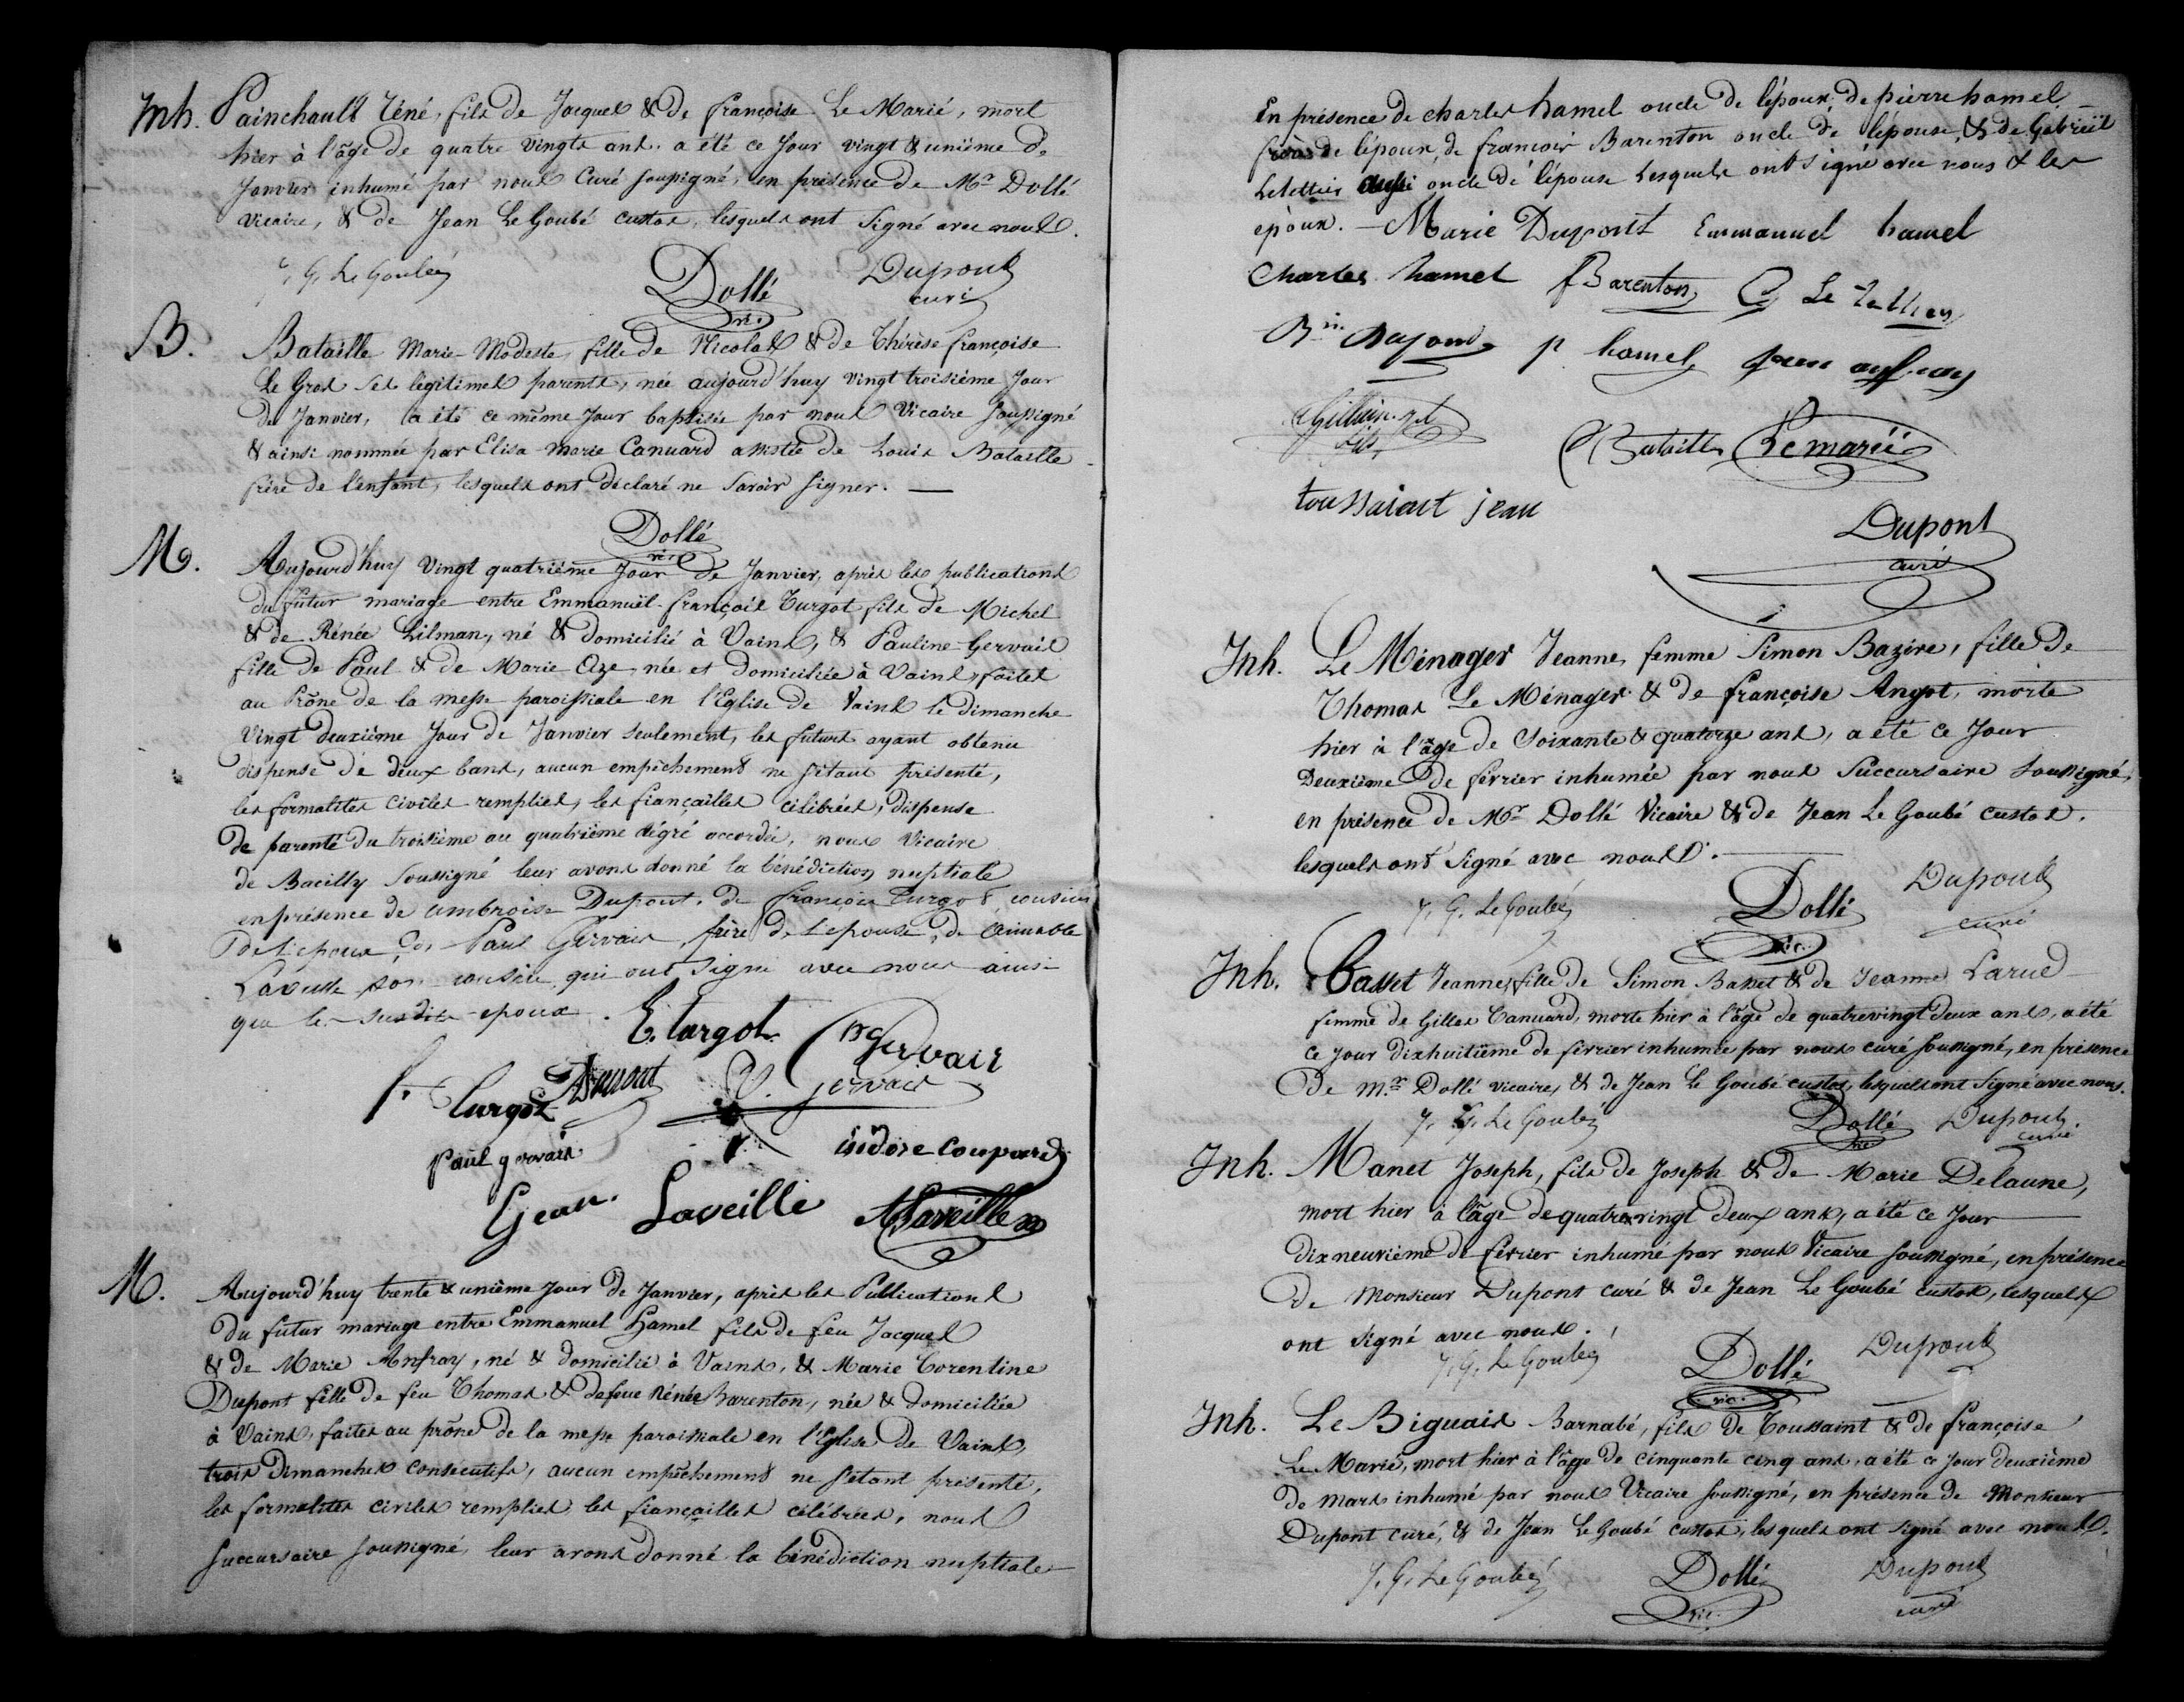 Inh. Painchault Réné, fils de Jacques & de françoise Le Marié, mort
hier à l'âge de quatre vingts ans, a été ce Jour vingt & unième de
Janvier inhumé par nous Curé soussigné, en présence de Mr Dollé
vicaire, & de Jean Le Goubé custos, lesquels ont signé avec nous.
J. G. Le Goubé Dollé vic. Dupont curé
B. Bataille Marie-Modeste, fille de Nicolas & de Thérèse françoise
Le Gros ses légitimes parents, née aujourd'huy vingt troisième Jour
de Janvier, a été ce même Jour baptisée par nous Vicaire soussigné
& ainsi nommée par Elisa-Marie Canuard assistée de Louis Bataille
frère de l'enfant, lesquels ont déclaré ne savoir signer. —
Dollé vic.
M. Aujourd'huy Vingt quatrième Jour de Janvier, après les publications
du futur mariage entre Emmanuël-françois Turgot fils de Michel
& de Rénée Lilman, né & domicilié à Vains, & Pauline Gervais
fille de Paul & de Marie Oze, née et domiciliée à Vains, faites
au Prône de la messe paroissiale en l'Eglise de Vains le dimanche
Vingt deuxième Jour de Janvier seulement, les futurs ayant obtenu
dispense de deux bans, aucun empêchement ne s'étant présenté,
les formalités civiles remplies, les fiançailles célébrées, dispense
de parenté du troisième au quatrième dégré accordée, nous Vicaire
de Bacilly soussigné leur avons donné la bénédiction nuptiale
en présence de ambroise Dupont, de françois Turgot cousin
de l'epoux, de Paul Gervais frère de l'epouse, de Aimable
Laveille son cousin qui ont signé avec nous ainsi
que les susdits epoux.
E. turgot Gervais
f. turgot ADupont P. gervais
paul gervais isidore coupard
Gjean. Laveille ALaveille
M. Aujourd'huy trente & unième Jour de Janvier, après les Publications
du futur mariage entre Emmanuel Hamel fils de feu Jacques
& de Marie Anfray, né & domicilié à Vains, & Marie Corentine
Dupont fille de feu Thomas & defeue Rénée Barenton, née & domiciliée
à Vains, faites au prône de la messe paroissiale en l'Eglise de Vains,
trois dimanches consécutifs, aucun empêchement ne s'étant présenté,
les formalités civiles remplies, les fiançailles célébrées, nous
Succursaire soussigné, leur avons donné la bénédiction nuptiale
En présence de charles hamel oncle de l'époux, de pierre hamel
frère de l'époux, de françois Barenton oncle de l'épouse, & de Gabriël
Letellier aussi oncle de l'épouse Lesquels ont signé avec nous & les
epoux. — Marie Dupont Emmanuel hamel
Charles hamel fBarenton G Le tellier
p hamel
Bataille Lemarié
toussaint jean
Dupont
curé
Inh. Le Ménager Jeanne, femme Simon Bazire, fille de
Thomas Le Ménager & de françoise Angot, morte
hier à l'âge de soixante & quatorze ans, a été ce Jour
Deuxième de février inhumée par nous Succursaire soussigné,
en présence de Mr Dollé Vicaire & de Jean Le Goubé custos,
lesquels ont signé avec nous.
J. G. Le Goubé Dollé vic. Dupont curé
Inh. Basset Jeanne, fille de Simon Basset & de Jeanne Larue
femme de Gilles Canuard, morte hier à l'âge de quatrevingt deux ans, a été
ce Jour dixhuitième de février inhumée par nous curé soussigné, en présence
de Mr Dollé vicaire, & de Jean Le Goubé custos, lesquels ont signé avec nous.
J. G. Le Goubé Dollé vic. Dupont curé.
Inh. Manet Joseph, fils de Joseph & de Marie Delaune,
mort hier à l'âge de quatrevingt deux ans, a été ce Jour
dixneuvième de février inhumé par nous Vicaire soussigné, en présence
de Monsieur Dupont curé & de Jean Le Goubé custos, lesquels
ont signé avec nous.
J. G. Le Goubé Dollé vic. Dupont
Inh. Le Biguais Barnabé, fils de Toussaint & de françoise
Le Marié, mort hier à l'âge de cinquante cinq ans, a été ce jour deuxième
de mars inhumé par nous Vicaire soussigné, en présence de Monsieur
Dupont curé, & de Jean Le Goubé custos, lesquels ont signé avec nous.
J. G. Le Goubé Dollé vic. Dupont curé